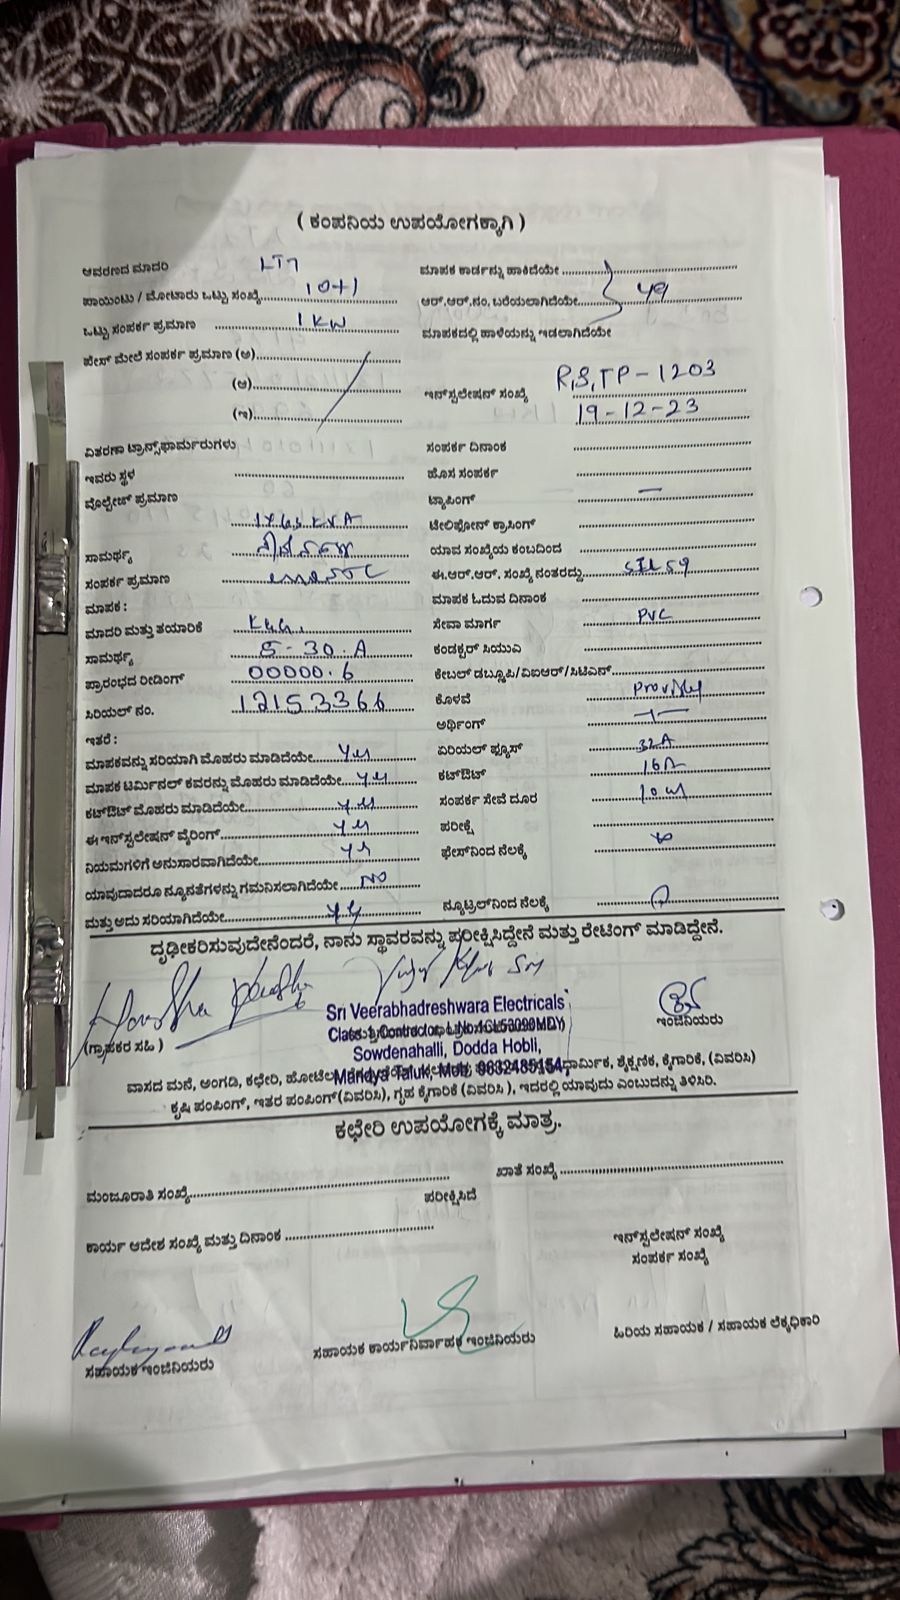 ( ಕಂಪನಿಯ ಉಪಯೋಗಕ್ಕಾಗಿ )
ಆವರಣದ ಮಾದರಿ LT7
ಪಾಯಿಂಟು / ಮೋಟಾರು ಒಟ್ಟು ಸಂಖ್ಯೆ 10+1
ಒಟ್ಟು ಸಂಪರ್ಕ ಪ್ರಮಾಣ 1 KW
ಫೇಸ್ ಮೇಲೆ ಸಂಪರ್ಕ ಪ್ರಮಾಣ (ಅ)
(ಆ)
(ಇ)
ವಿತರಣಾ ಟ್ರಾನ್ಸ್‌ಫಾರ್ಮರುಗಳು
ಇವರು ಸ್ಥಳ
ವೋಲ್ಟೇಜ್ ಪ್ರಮಾಣ
ಸಾಮರ್ಥ್ಯ
ಸಂಪರ್ಕ ಪ್ರಮಾಣ
ಮಾಪಕ :
ಮಾದರಿ ಮತ್ತು ತಯಾರಿಕೆ
ಸಾಮರ್ಥ್ಯ 5-30.A
ಪ್ರಾರಂಭದ ರೀಡಿಂಗ್ 00000.6
ಸಿರಿಯಲ್ ನಂ. 12153366
ಇತರೆ :
ಮಾಪಕವನ್ನು ಸರಿಯಾಗಿ ಮೊಹರು ಮಾಡಿದೆಯೇ yes
ಮಾಪಕ ಟರ್ಮಿನಲ್ ಕವರನ್ನು ಮೊಹರು ಮಾಡಿದೆಯೇ yes
ಕಟ್‌ಔಟ್ ಮೊಹರು ಮಾಡಿದೆಯೇ yes
ಈ ಇನ್‌ಸ್ಟಲೇಷನ್ ವೈರಿಂಗ್ yes
ನಿಯಮಗಳಿಗೆ ಅನುಸಾರವಾಗಿದೆಯೇ yes
ಯಾವುದಾದರೂ ನ್ಯೂನತೆಗಳನ್ನು ಗಮನಿಸಲಾಗಿದೆಯೇ NO
ಮತ್ತು ಅದು ಸರಿಯಾಗಿದೆಯೇ yes
ಮಾಪಕ ಕಾರ್ಡನ್ನು ಹಾಕಿದೆಯೇ
ಆರ್.ಆರ್.ನಂ. ಬರೆಯಲಾಗಿದೆಯೇ
ಮಾಪಕದಲ್ಲಿ ಹಾಳೆಯನ್ನು ಇಡಲಾಗಿದೆಯೇ
ಇನ್‌ಸ್ಟಲೇಷನ್ ಸಂಖ್ಯೆ R,S,TP-1203
19-12-23
ಸಂಪರ್ಕ ದಿನಾಂಕ
ಹೊಸ ಸಂಪರ್ಕ
ಟ್ಯಾಪಿಂಗ್ —
ಟೇಲಿಫೋನ್ ಕ್ರಾಸಿಂಗ್
ಯಾವ ಸಂಖ್ಯೆಯ ಕಂಬದಿಂದ
ಈ.ಆರ್.ಆರ್. ಸಂಖ್ಯೆ ನಂತರದ್ದು
ಮಾಪಕ ಓದುವ ದಿನಾಂಕ
ಸೇವಾ ಮಾರ್ಗ PVC
ಕಂಡಕ್ಟರ್ ಸಿಯುಎ
ಕೇಬಲ್ ಡಬ್ಲೂಪಿ/ವಿಐಆರ್/ಸಿಟಿಎಸ್
ಕೊಳವೆ
ಅರ್ಥಿಂಗ್
ಏರಿಯಲ್ ಫ್ಯೂಸ್ 32A
ಕಟ್‌ಔಟ್ 16A
ಸಂಪರ್ಕ ಸೇವೆ ದೂರ
ಪರೀಕ್ಷೆ
ಫೇಸ್‌ನಿಂದ ನೆಲಕ್ಕೆ
ನ್ಯೂಟ್ರಲ್‌ನಿಂದ ನೆಲಕ್ಕೆ
ದೃಢೀಕರಿಸುವುದೇನೆಂದರೆ, ನಾನು ಸ್ಥಾವರವನ್ನು ಪರೀಕ್ಷಿಸಿದ್ದೇನೆ ಮತ್ತು ರೇಟಿಂಗ್ ಮಾಡಿದ್ದೇನೆ.
(ಗ್ರಾಹಕರ ಸಹಿ)
Sri Veerabhadreshwara Electricals
Class 1 Contractor, L.No.1CL53090MDY
Sowdenahalli, Dodda Hobli,
Mandya Taluk, Mob: 9632485154
ಇಂಜಿನಿಯರು
ವಾಸದ ಮನೆ, ಅಂಗಡಿ, ಕಛೇರಿ, ಧಾರ್ಮಿಕ, ಶೈಕ್ಷಣಿಕ, ಕೈಗಾರಿಕೆ, (ವಿವರಿಸಿ)
ಕೃಷಿ ಪಂಪಿಂಗ್, ಇತರ ಪಂಪಿಂಗ್(ವಿವರಿಸಿ), ಗೃಹ ಕೈಗಾರಿಕೆ (ವಿವರಿಸಿ ), ಇದರಲ್ಲಿ ಯಾವುದು ಎಂಬುದನ್ನು ತಿಳಿಸಿರಿ.
ಕಛೇರಿ ಉಪಯೋಗಕ್ಕೆ ಮಾತ್ರ.
ಮಂಜೂರಾತಿ ಸಂಖ್ಯೆ
ಖಾತೆ ಸಂಖ್ಯೆ
ಪರೀಕ್ಷಿಸಿದೆ
ಕಾರ್ಯ ಆದೇಶ ಸಂಖ್ಯೆ ಮತ್ತು ದಿನಾಂಕ
ಇನ್‌ಸ್ಟಲೇಷನ್ ಸಂಖ್ಯೆ
ಸಂಪರ್ಕ ಸಂಖ್ಯೆ
ಸಹಾಯಕ ಇಂಜಿನಿಯರು
ಸಹಾಯಕ ಕಾರ್ಯನಿರ್ವಾಹಕ ಇಂಜಿನಿಯರು
ಹಿರಿಯ ಸಹಾಯಕ / ಸಹಾಯಕ ಲೆಕ್ಕಧಿಕಾರಿ